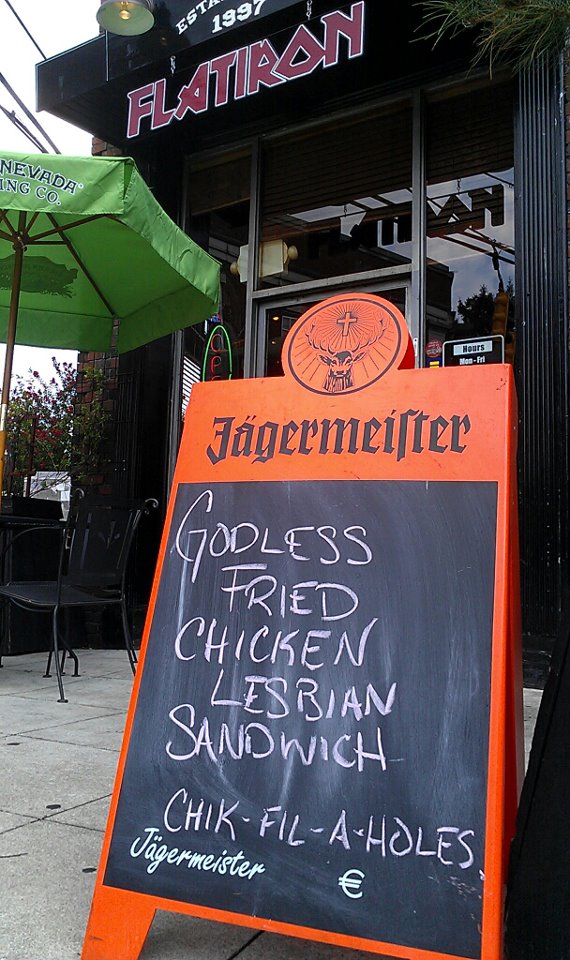 ESTA
1997
FLATIRON
NEVADA
ING CO.
Hours
Mon - Fri
Jägermeiſter
GODLESS
FRIED
CHICKEN
LESBIAN
SANDWICH
CHIK-FIL-A-HOLES
Jägermeister
€